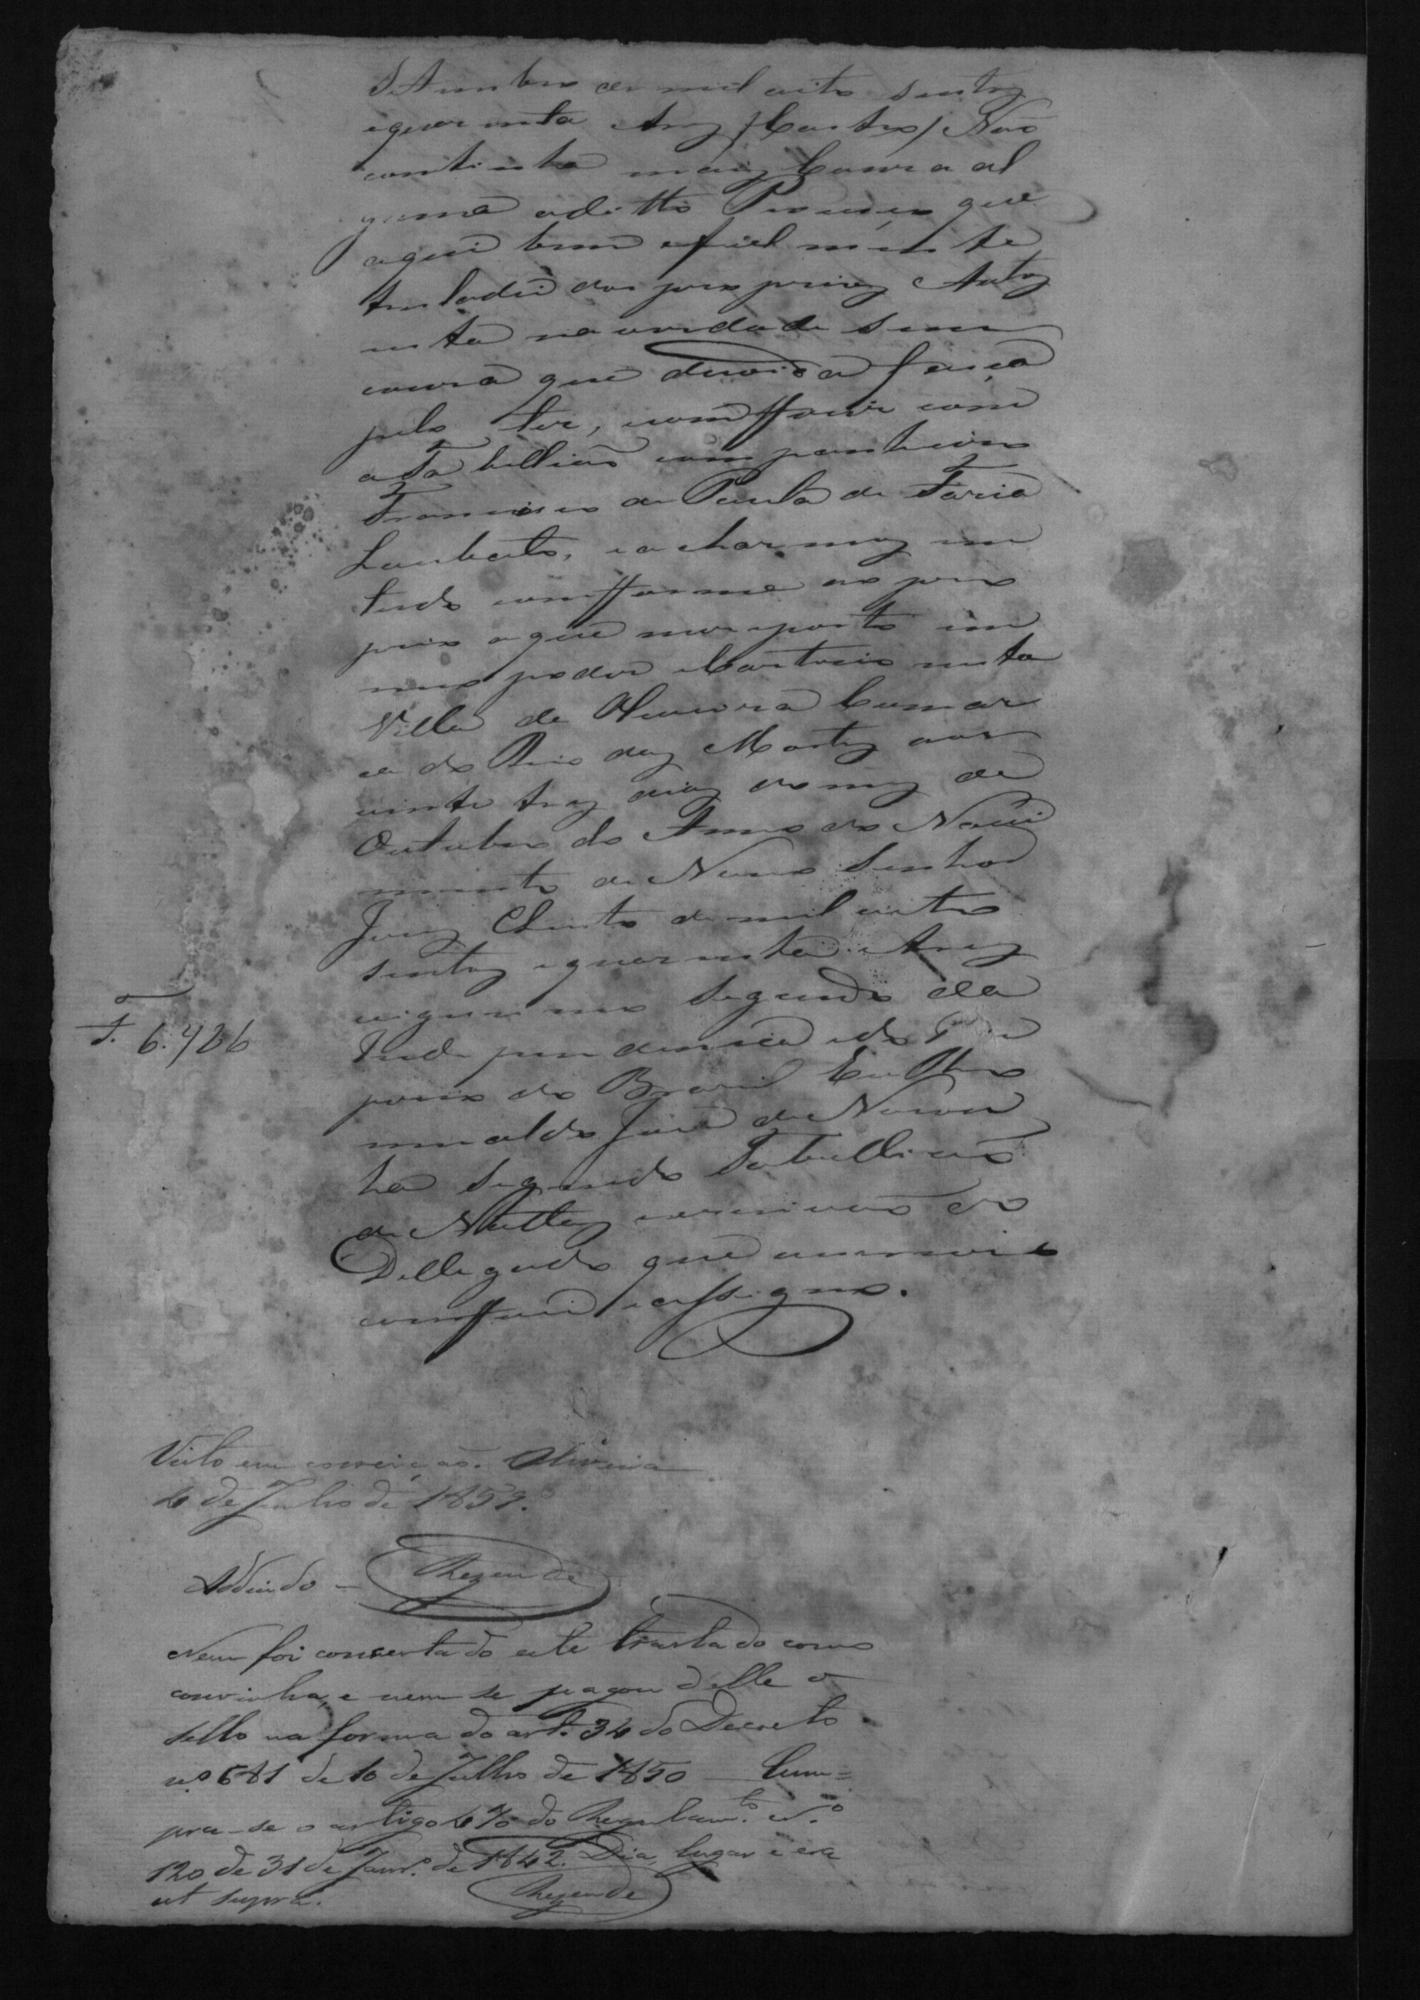 Setembro de mil oito sentos
equarenta etrez /Castro/ Não
continha mais Cousa al
guma odito Processo que
aqui bem efielmente
tresladei dos proprios Autos
esta na verdade sem
cousa que duvida faça
pelo ler, comfferir com
o Tabelliaõ companheiro
Francisco de Paula de Faria
Lambarto, e achar mos em
tudo comfforme ao pro
prio aque me reporto em
meo poder eCartorio nesta
Villa de Oliveira Comar
ca do Rio das Mortes aos
vinte trez dias do mez de
Outubro do Anno do Nasci
mento de Nosso Senhor
Jesus Christo de mil oito
sentos equarenta etrez
vigessimo segundo da
Independencia e do Im
perio do Brasil Eu
José de Noron
ha segundo Tabelliaõ
de Nottas eescrivaõ do
Dellegado que escrevi
comfferi eassigno.
T. 6.426
Visto em correição. Oliveira
4 de Julho de 1853.
Addindo — Rezende
Nem foi concertado este traslado como
convinha, e nem se pagou d'elle o
sello na forma do artº. 34 do Decreto
nº 681 de 10 de Julho de 1850 — Cum=
pra-se o artigo 470 do Regulamto. nº
120 de 31 de Janrº. de 1842. Dia, lugar e era
ut supra. Rezende